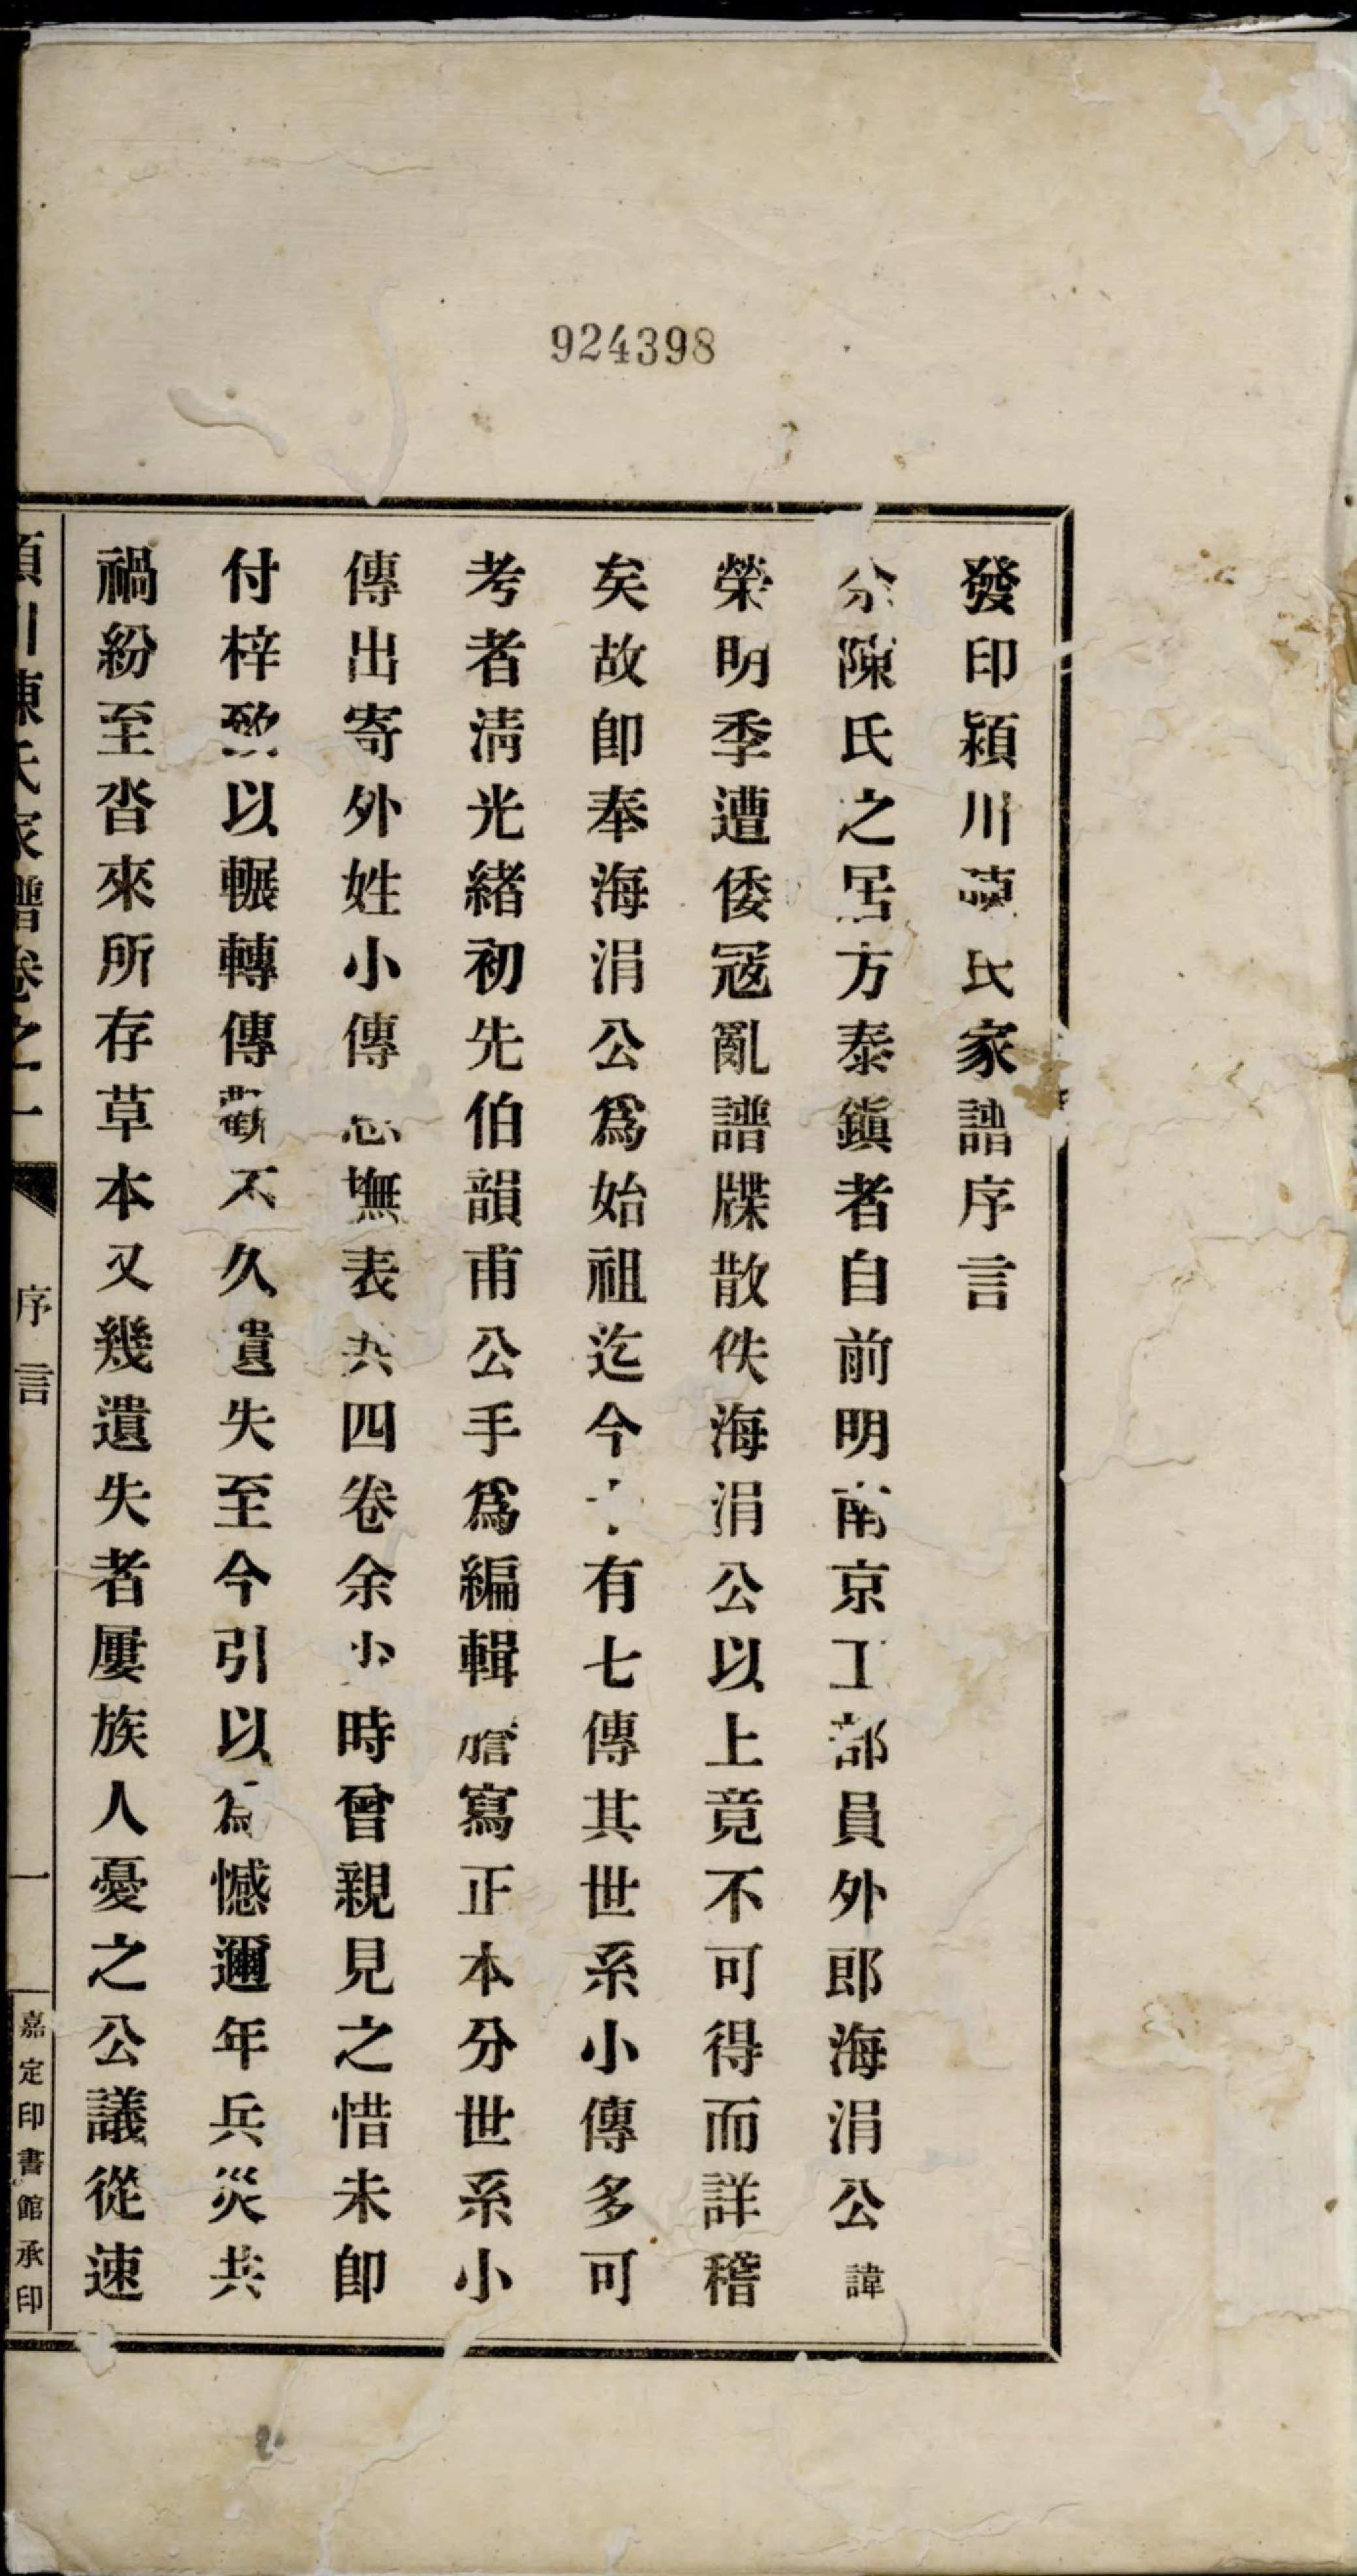 924398
發印潁川陳氏家譜序言
余陳氏之居方泰鎭者自前明南京工部員外郎海涓公諱
榮明季遭倭寇亂譜牒散佚海涓公以上竟不可得而詳稽
矣故卽奉海涓公爲始祖迄今十有七傳其世系小傳多可
考者淸光緖初先伯韻甫公手爲編輯謄寫正本分世系小
傳出寄外姓小傳忌撫表共四卷余少時曾親見之惜未卽
付梓致以輾轉傳觀不久遺失至今引以爲憾邇年兵災共
禍紛至沓來所存草本又幾遺失者屢族人憂之公議從速
潁川陳氏家譜卷之一 序言 一 嘉定印書館承印